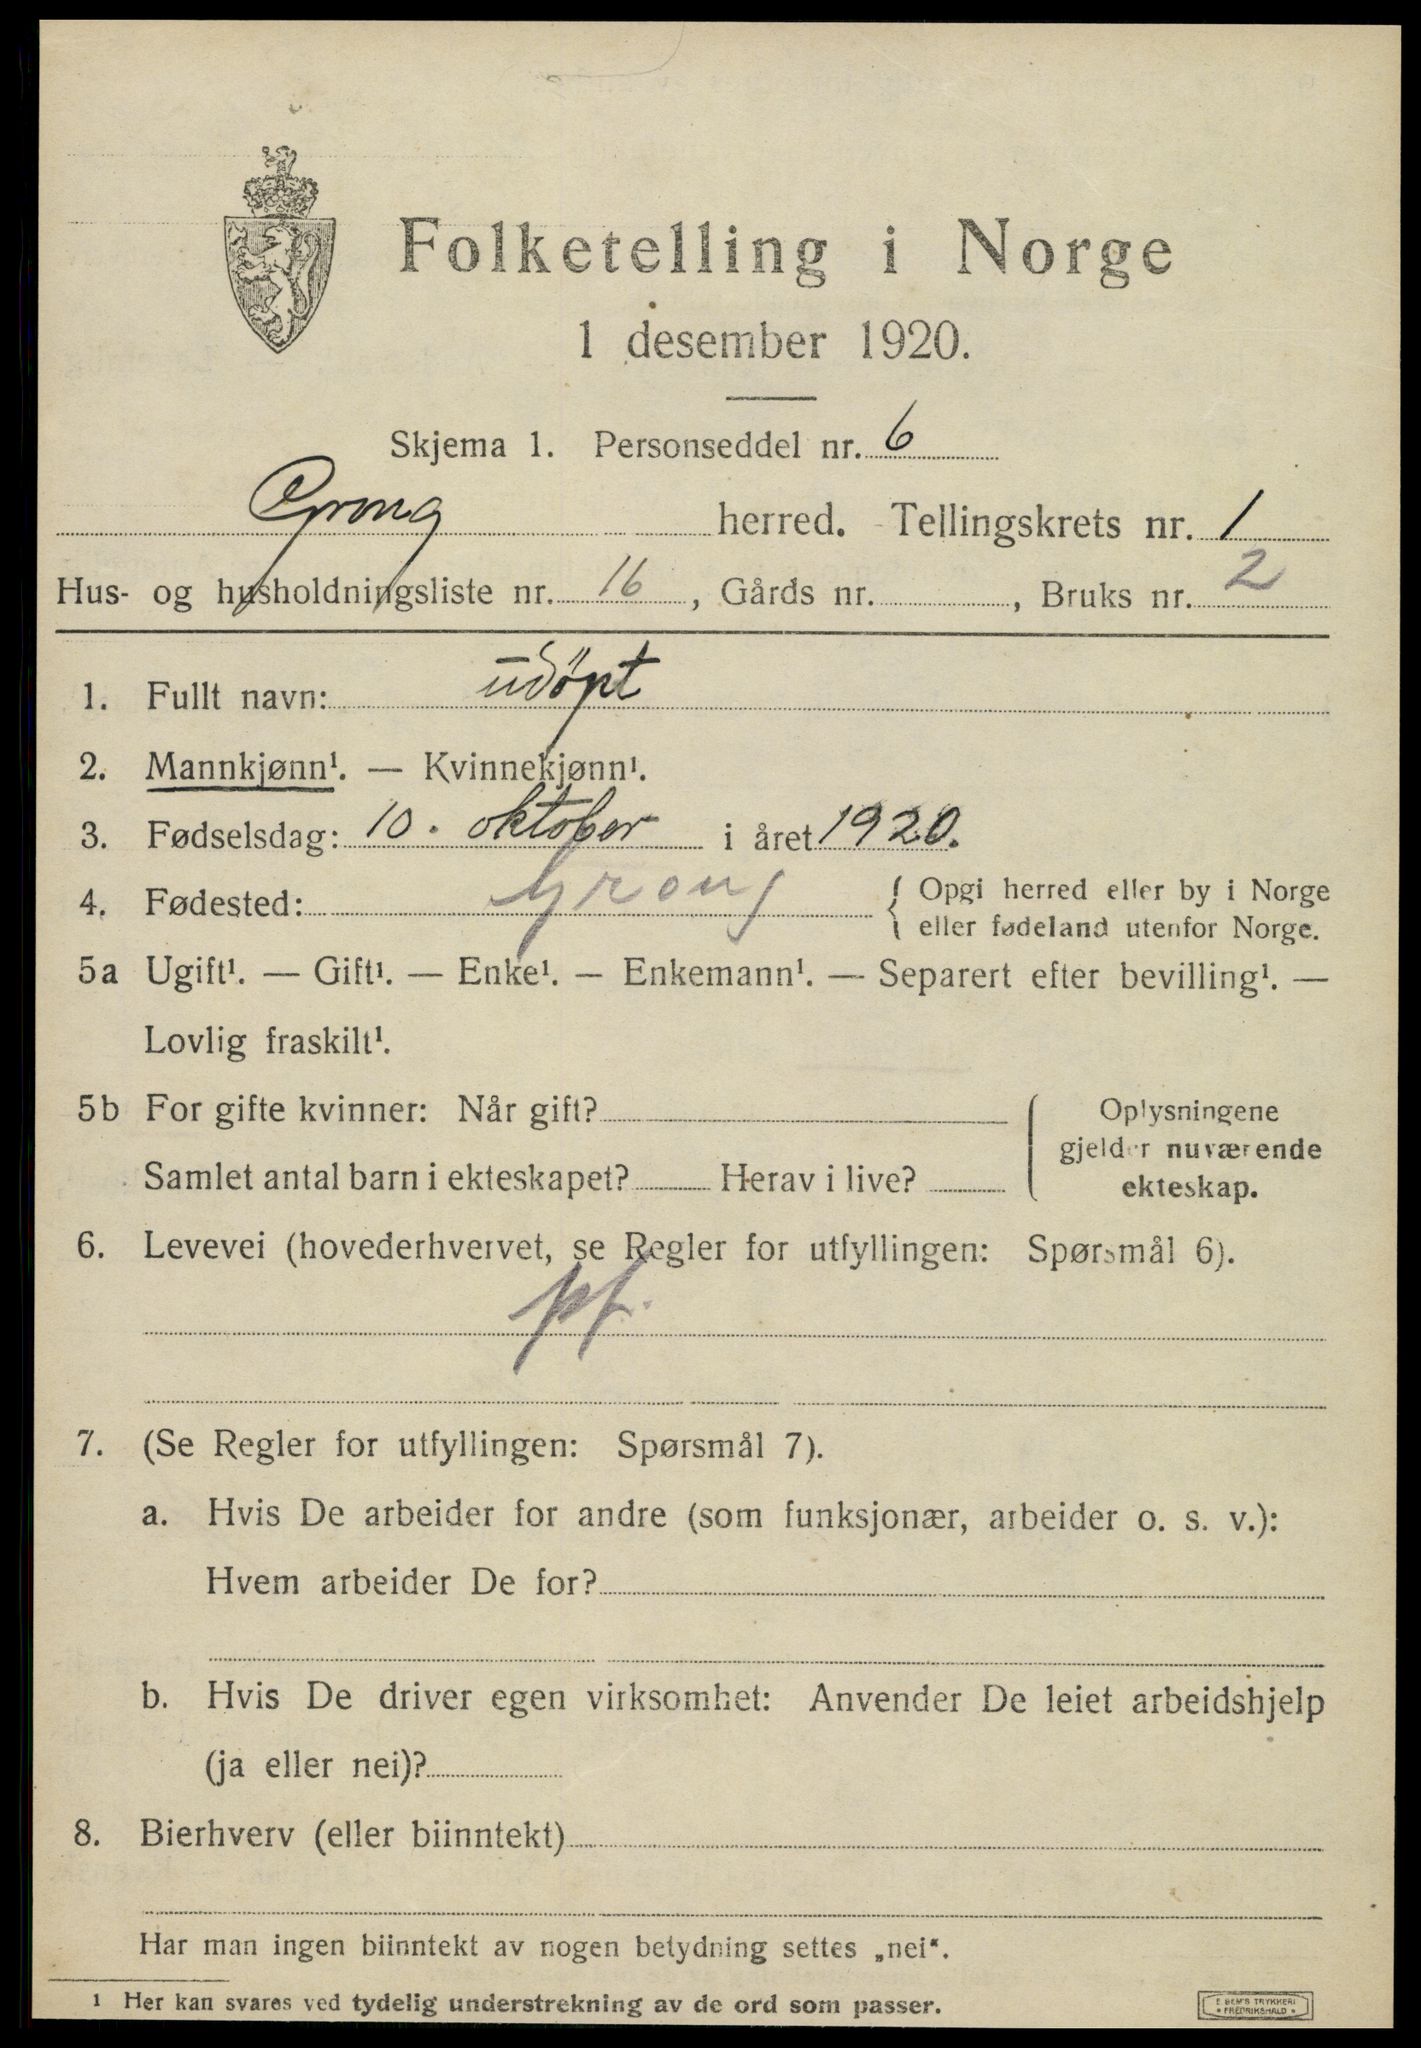 Folketelling i Norge
1 desember 1920.
Skjema 1. Personseddel nr. 6
Grong herred. Tellingskrets nr. 1
Hus- og husholdningsliste nr. 16, Gårds nr. , Bruks nr. 2
1. Fullt navn: udöpt
2. Mannkjønn¹. — Kvinnekjønn¹.
3. Fødselsdag: 10. oktober i året 1920.
4. Fødested: Grong { Opgi herred eller by i Norge
eller fødeland utenfor Norge.
5a Ugift¹. — Gift¹. — Enke¹. — Enkemann¹. — Separert efter bevilling¹. —
Lovlig fraskilt¹.
5b For gifte kvinner: Når gift?
Samlet antal barn i ekteskapet? Herav i live?
Oplysningene
gjelder nuværende
ekteskap.
6. Levevei (hovederhvervet, se Regler for utfyllingen: Spørsmål 6).
pf.
7. (Se Regler for utfyllingen: Spørsmål 7).
a. Hvis De arbeider for andre (som funksjonær, arbeider o. s. v.):
Hvem arbeider De for?
b. Hvis De driver egen virksomhet: Anvender De leiet arbeidshjelp
(ja eller nei)?
8. Bierhverv (eller biinntekt)
Har man ingen biinntekt av nogen betydning settes „nei“.
1 Her kan svares ved tydelig understrekning av de ord som passer.
E SEM'S TRYKKERI
• FREDRIKSHALD •